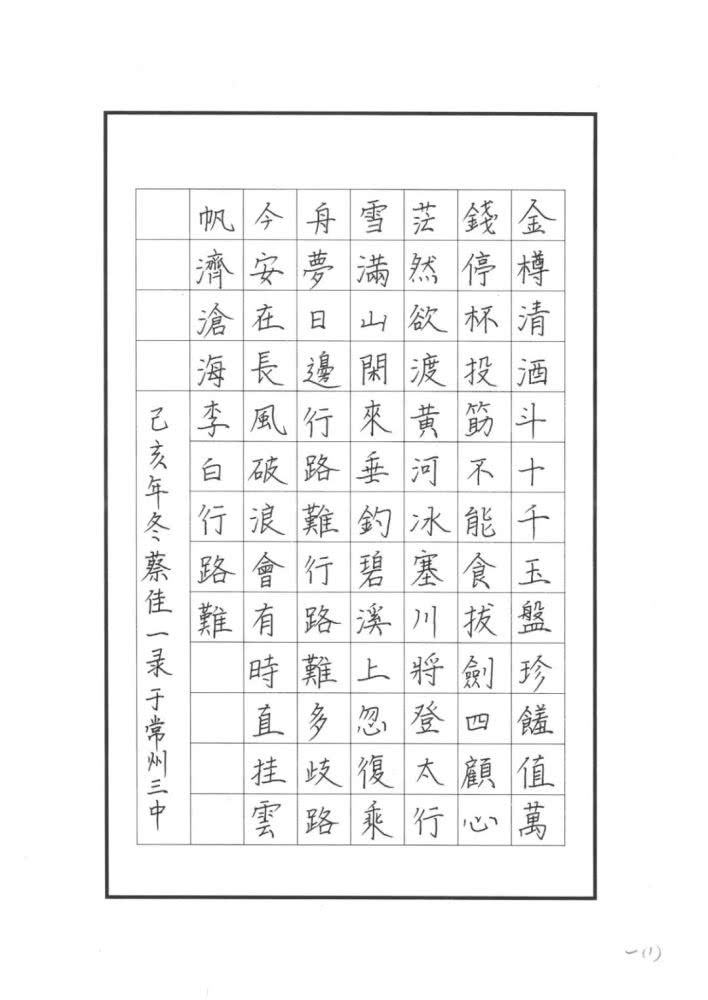 金樽清酒斗十千玉盤珍饈值萬
錢停杯投筯不能食拔劍四顧心
茫然欲渡黃河冰塞川將登太行
雪滿山閑來垂釣碧溪上忽復乘
舟夢日邊行路難行路難多歧路
今安在長風破浪會有時直挂雲
帆濟滄海李白行路難
己亥年冬蔡佳一录于常州三中
一(1)